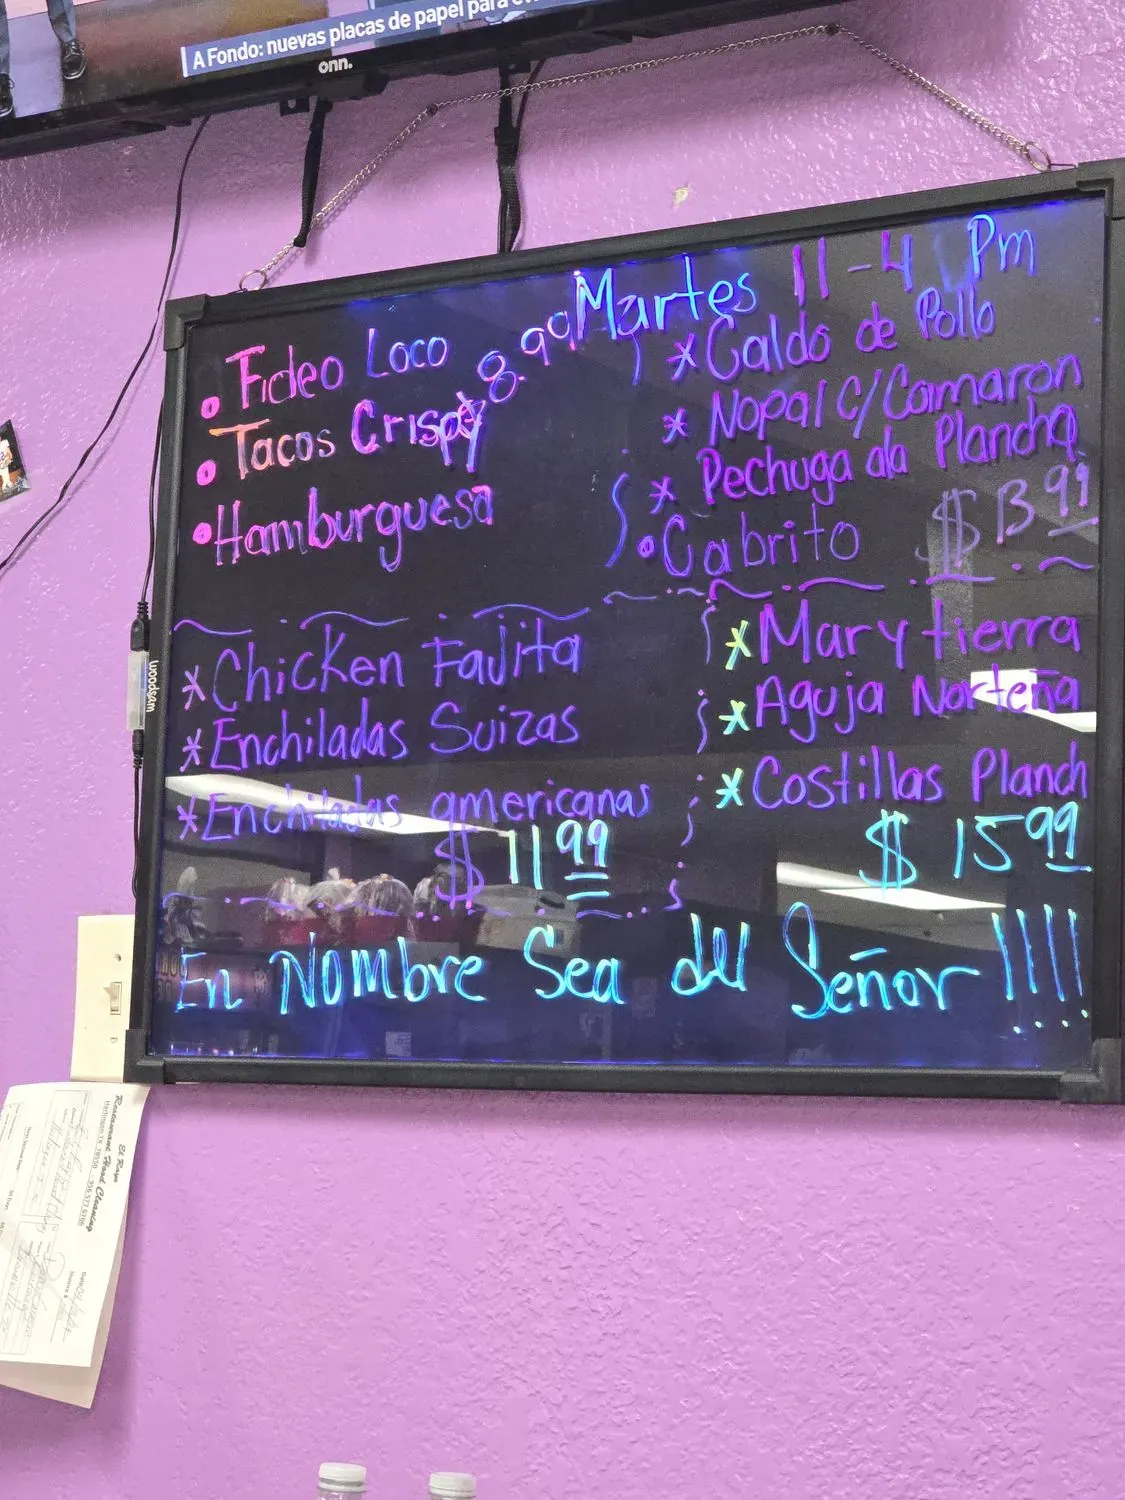 A Fondo: nuevas placas de papel para
onn.
Martes 11-4 Pm
• Fideo Loco 8.99
• Tacos Crispy
• Hamburguesa
* Caldo de Pollo
* Nopal c/Camaron
* Pechuga ala Plancha
• Cabrito $13.99
* Chicken Fajita
* Enchiladas Suizas
* Enchiladas americanas
$11.99
* Mar y tierra
* Aguja Norteña
* Costillas Planch
$15.99
En Nombre Sea del Señor!!!!
woodsam
El Raya
Restaurant Hood Cleaning
Harlingen, TX